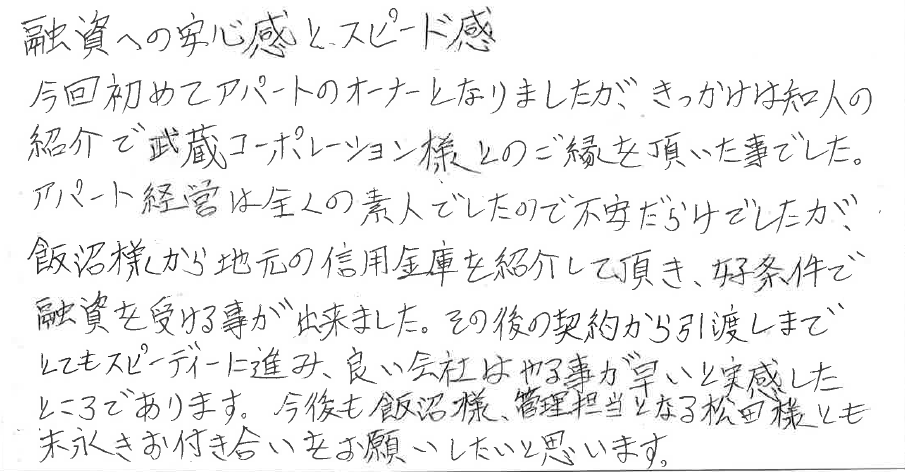 融資への安心感と、スピード感
今回初めてアパートのオーナーとなりましたが、きっかけは知人の
紹介で武蔵コーポレーション様とのご縁を頂いた事でした。
アパート経営は全くの素人でしたので不安だらけでしたが、
飯沼様から地元の信用金庫を紹介して頂き、好条件で
融資を受ける事が出来ました。その後の契約から引渡しまで
とてもスピーディーに進み、良い会社はやる事が早いと実感した
ところであります。今後も飯沼様、管理担当となる松田様とも
末永きお付き合いをお願いしたいと思います。